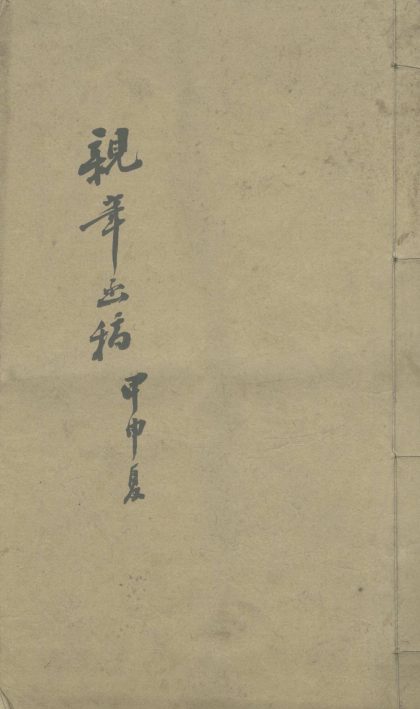 親筆函稿
甲申夏